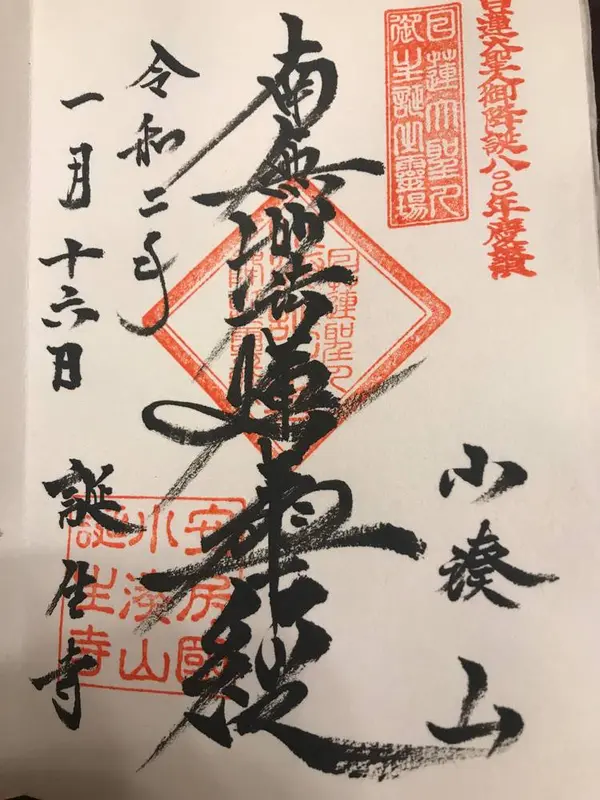 日蓮大聖人御降誕八〇〇年慶讃
日蓮大聖人
御生誕之靈場
小湊山
南無妙法蓮華経
日蓮聖人
令和二年
一月十六日
誕生寺
安房國
小湊山
誕生寺